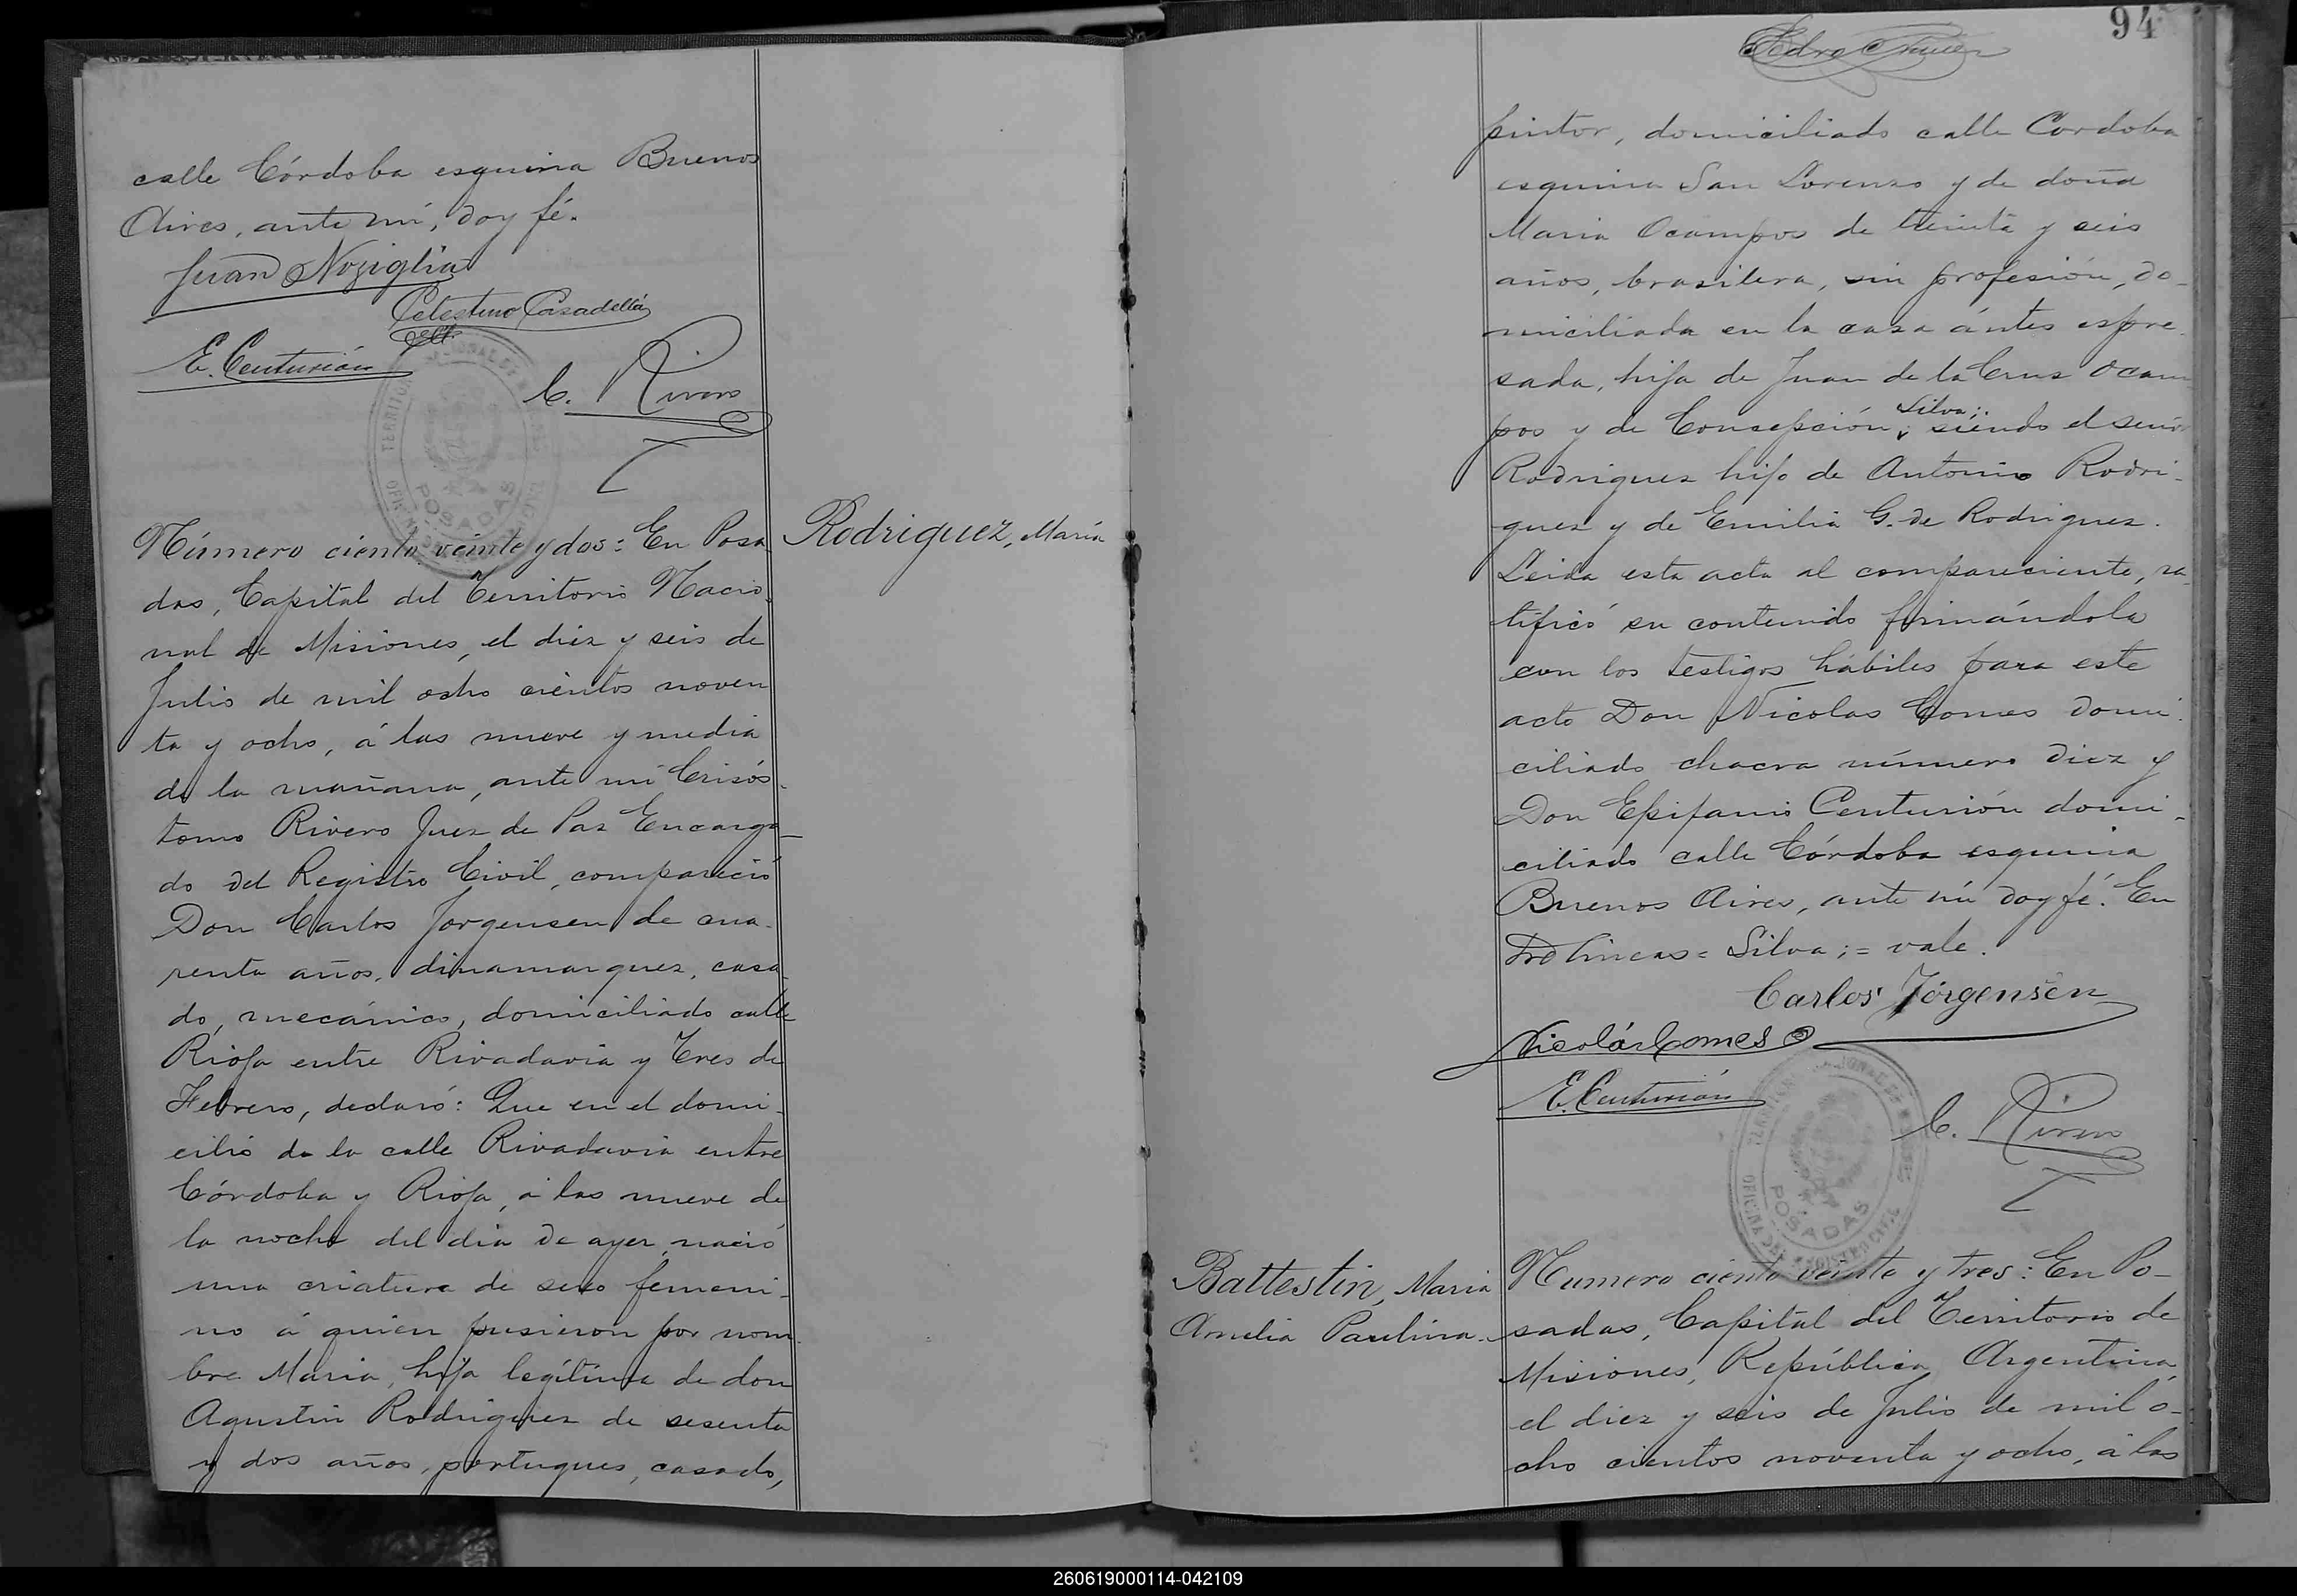 calle Córdoba esquina Buenos
Aires, ante mí, doy fé.
Juan Noziglia
Celestino Casadellá
E. Centurión
C. Rivero
TERRITORIO NACIONAL DE
POSADAS
Rodriguez, María
Número ciento veinte y dos: En Posa
das, Capital del Territorio Nacio-
nal de Misiones, el diez y seis de
Julio de mil ocho cientos noven
ta y ocho, á las nueve y media
de la mañana, ante mi Crisós-
tomo Rivero Juez de Paz Encarga-
do del Registro Civil, compareció
Don Carlos Jorgensen de cua-
renta años, dinamarquez, casa-
do, mecánico, domiciliado calle
Rioja entre Rivadavia y Tres de
Febrero, declaró: Que en el domi-
cilio de la calle Rivadavia entre
Córdoba y Rioja, á las nueve de
la noche del dia de ayer, nació
una criatura de sexo femeni-
no á quien pusieron por nom-
bre Maria, hija legítima de don
Agustin Rodriguez de sesenta
y dos años, portugues, casado,
94
pintor, domiciliado calle Cordoba
esquina San Lorenzo y de doña
Maria Ocampos de treinta y seis
años, brasilera, sin profesión, do-
miciliada en la casa ántes espre-
sada, hija de Juan de la Cruz Ocam
Silva;
pos y de Concepción; siendo el señor
Rodriguez hijo de Antonio Rodri-
guez y de Emilia G. de Rodriguez.
Leida esta acta al compareciente, ra-
tíficó su contenido firmándola
con los testigos hábiles para este
acto Don Nicolas Gomes domi-
ciliado chacra número diez y
Don Epifanio Centurión domi-
ciliado calle Córdoba esquina
Buenos Aires, ante mí doy fé. En
tre lineas = Silva; = vale.
Carlos Jörgensen
Nicolás Gomes
E. Centurión
C. Rivero
OFICINA DEL REGISTRO CIVIL
POSADAS
Battestin, Maria
Amelia Paulina.
Numero ciento veinte y tres: En Po-
sadas, Capital del Territorio de
Misiones, República Argentina,
el diez y seis de Julio de mil o-
cho cientos noventa y ocho, á las
260619000114-042109